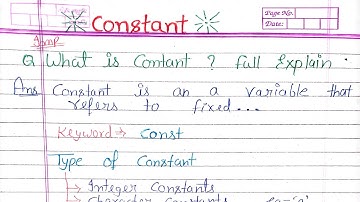 Page No.
Date:
Constant
Imp
Q What is Contant ? full Explain .
Ans Constant is an a variable that
refers to fixed...
Keyword → Const
Type of Constant
→ Integer Constants
→ Character Constants eg='a'